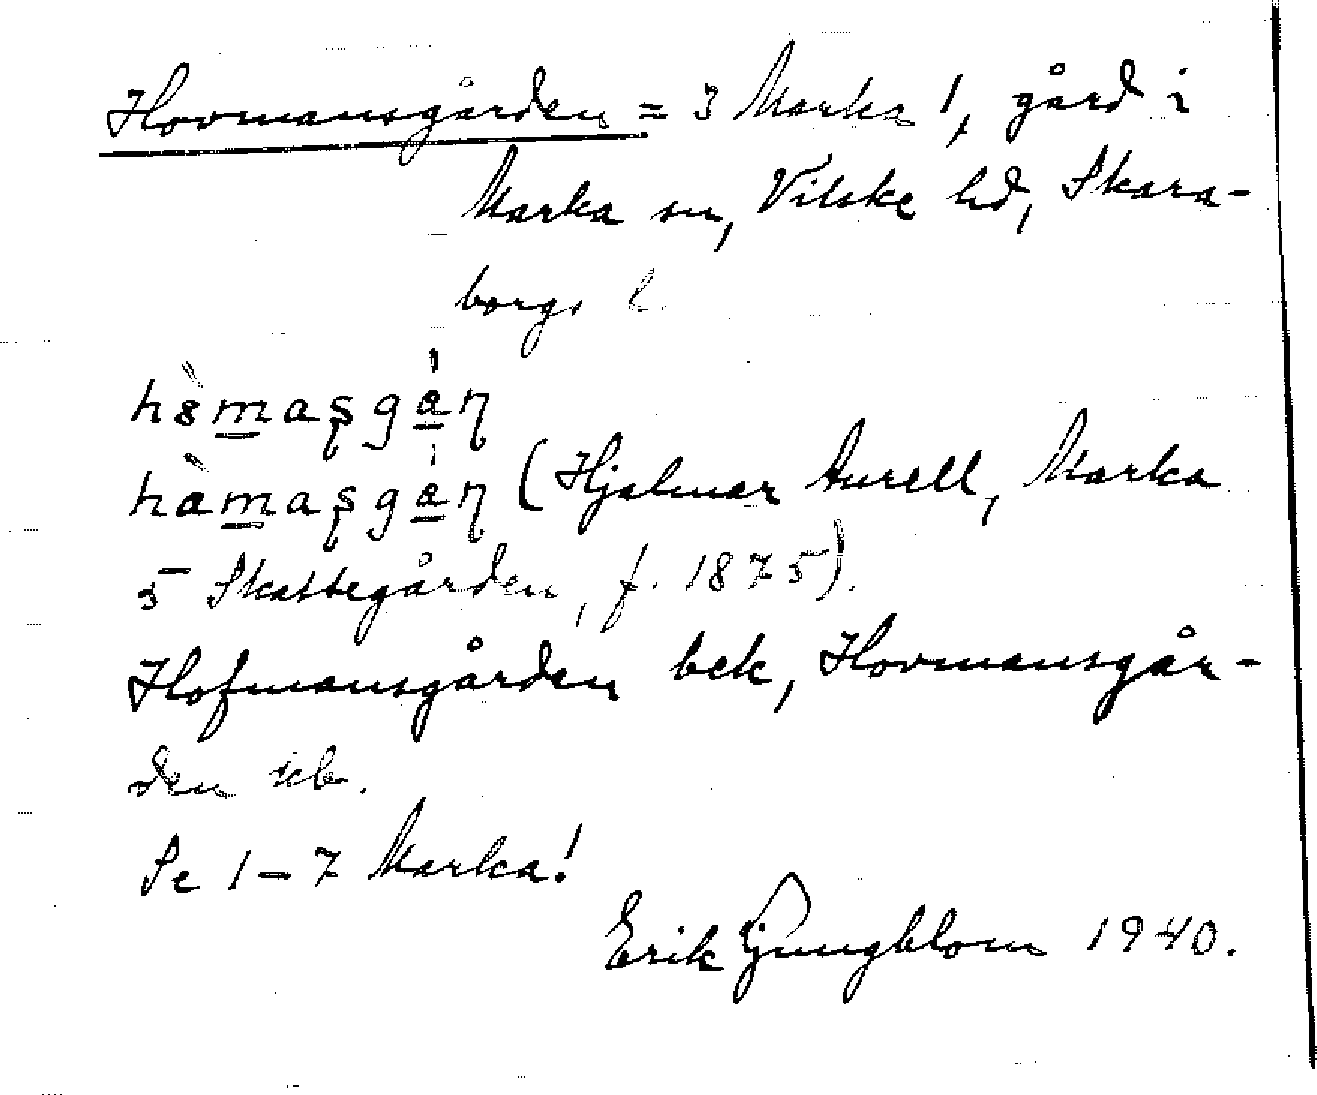 Hovmansgården = 3 Marka 1, gård i
Marka sn, Vilske hd, Skara-
borgs l.
hòmaşgán
hàmaşgán (Hjalmar Aurell, Marka
5 Skattegården, f. 1875).
Hofmansgården bek, Hovmansgår-
den jeb.
Se 1–7 Marka!
Erik Ljungblom 1940.